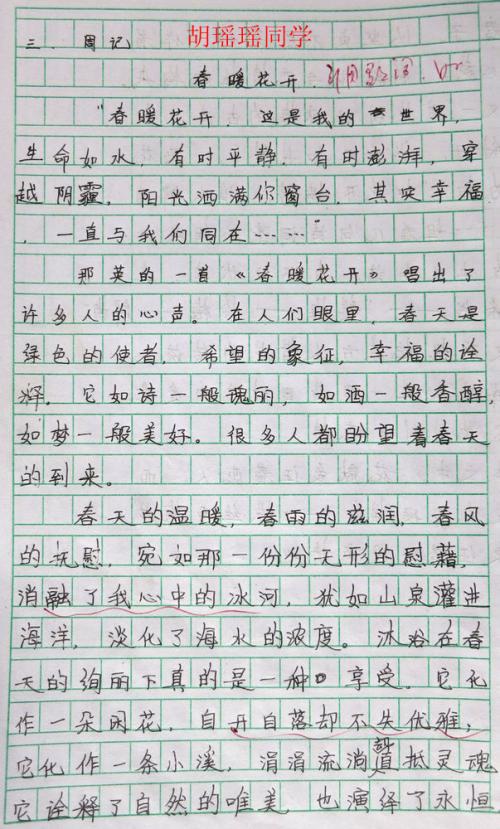 胡瑶瑶同学
三、周记
春暖花开.
引用歌词.
"春暖花开,这是我的世界,
生命如水,有时平静,有时澎湃,穿
越阴霾,阳光洒满你窗台,其实幸福
,一直与我们同在……"
那英的一首《春暖花开》唱出了
许多人的心声。在人们眼里,春天是
绿色的使者,希望的象征,幸福的诠
释。它如诗一般瑰丽,如酒一般香醇,
如梦一般美好。很多人都盼望着春天
的到来。
春天的温暖,春雨的滋润,春风
的抚慰,宛如那一份份无形的慰藉,
消融了我心中的冰河,犹如山泉灌进
海洋,淡化了海水的浓度。沐浴在春
天的绚丽下真的是一种享受。它化
作一朵闲花,自开自落却不失优雅;
它化作一条小溪,涓涓流淌直抵灵魂
它诠释了自然的唯美,也演绎了永恒